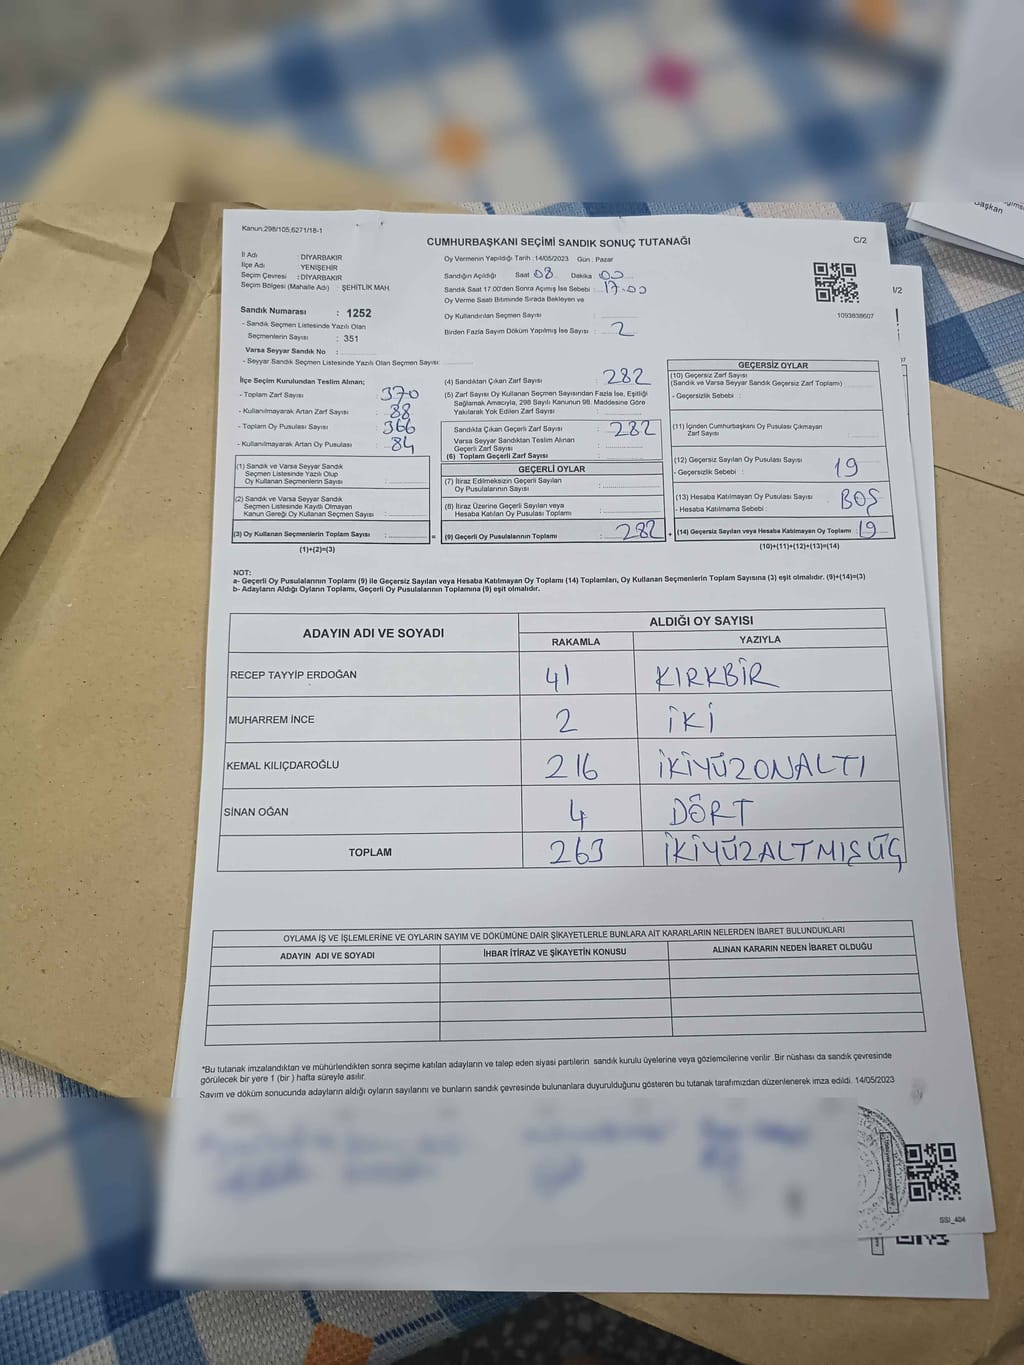 Kanun:298/105,6271/18-1
CUMHURBAŞKANI SEÇİMİ SANDIK SONUÇ TUTANAĞI
C/2
İl Adı : DİYARBAKIR
İlçe Adı : YENİŞEHİR
Seçim Çevresi : DİYARBAKIR
Seçim Bölgesi (Mahalle Adı) : ŞEHİTLİK MAH.
Oy Vermenin Yapıldığı Tarih : 14/05/2023 Gün : Pazar
Sandığın Açıldığı Saat 08 Dakika 00
Sandık Saat 17.00'den Sonra Açımış İse Sebebi : 17.00
Oy Verme Saati Bitiminde Sırada Bekleyen ve
Oy Kullandırılan Seçmen Sayısı :
Birden Fazla Sayım Döküm Yapılmış İse Sayısı : 2
1093838607
Sandık Numarası : 1252
- Sandık Seçmen Listesinde Yazılı Olan
Seçmenlerin Sayısı : 351
Varsa Seyyar Sandık No :
- Seyyar Sandık Seçmen Listesinde Yazılı Olan Seçmen Sayısı:
İlçe Seçim Kurulundan Teslim Alınan;
- Toplam Zarf Sayısı : 370
- Kullanılmayarak Artan Zarf Sayısı : 88
- Toplam Oy Pusulası Sayısı : 366
- Kullanılmayarak Artan Oy Pusulası : 84
(1) Sandık ve Varsa Seyyar Sandık
Seçmen Listesinde Yazılı Olup
Oy Kullanan Seçmenlerin Sayısı :
(2) Sandık ve Varsa Seyyar Sandık
Seçmen Listesinde Kayıtlı Olmayan
Kanun Gereği Oy Kullanan Seçmen Sayısı :
(3) Oy Kullanan Seçmenlerin Toplam Sayısı :
(1)+(2)=(3)
(4) Sandıktan Çıkan Zarf Sayısı : 282
(5) Zarf Sayısı Oy Kullanan Seçmen Sayısından Fazla İse, Eşitliği
Sağlamak Amacıyla, 298 Sayılı Kanunun 98. Maddesine Göre
Yakılarak Yok Edilen Zarf Sayısı :
Sandıkta Çıkan Geçerli Zarf Sayısı : 282
Varsa Seyyar Sandıktan Teslim Alınan
Geçerli Zarf Sayısı :
(6) Toplam Geçerli Zarf Sayısı :
GEÇERLİ OYLAR
(7) İtiraz Edilmeksizin Geçerli Sayılan
Oy Pusulalarının Sayısı :
(8) İtiraz Üzerine Geçerli Sayılan veya
Hesaba Katılan Oy Pusulası Toplamı :
= (9) Geçerli Oy Pusulalarının Toplamı : 282 +
GEÇERSİZ OYLAR
(10) Geçersiz Zarf Sayısı
(Sandık ve Varsa Seyyar Sandık Geçersiz Zarf Toplamı)
- Geçersizlik Sebebi :
(11) İçinden Cumhurbaşkanı Oy Pusulası Çıkmayan
Zarf Sayısı
(12) Geçersiz Sayılan Oy Pusulası Sayısı : 19
- Geçersizlik Sebebi :
(13) Hesaba Katılmayan Oy Pusulası Sayısı : BOŞ
- Hesaba Katılmama Sebebi :
(14) Geçersiz Sayılan veya Hesaba Katılmayan Oy Toplamı : 19
(10)+(11)+(12)+(13)=(14)
NOT:
a- Geçerli Oy Pusulalarının Toplamı (9) ile Geçersiz Sayılan veya Hesaba Katılmayan Oy Toplamı (14) Toplamları, Oy Kullanan Seçmenlerin Toplam Sayısına (3) eşit olmalıdır. (9)+(14)=(3)
b- Adayların Aldığı Oyların Toplamı, Geçerli Oy Pusulalarının Toplamına (9) eşit olmalıdır.
ADAYIN ADI VE SOYADI
ALDIĞI OY SAYISI
RAKAMLA YAZIYLA
RECEP TAYYİP ERDOĞAN 41 KIRKBİR
MUHARREM İNCE 2 İKİ
KEMAL KILIÇDAROĞLU 216 İKİYÜZONALTI
SİNAN OĞAN 4 DÖRT
TOPLAM 263 İKİYÜZALTMIŞÜÇ
OYLAMA İŞ VE İŞLEMLERİNE VE OYLARIN SAYIM VE DÖKÜMÜNE DAİR ŞİKAYETLERLE BUNLARA AİT KARARLARIN NELERDEN İBARET BULUNDUKLARI
ADAYIN ADI VE SOYADI İHBAR İTİRAZ VE ŞİKAYETİN KONUSU ALINAN KARARIN NEDEN İBARET OLDUĞU
*Bu tutanak imzalandıktan ve mühürlendikten sonra seçime katılan adayların ve talep eden siyasi partilerin sandık kurulu üyelerine veya gözlemcilerine verilir. Bir nüshası da sandık çevresinde
görülecek bir yere 1 (bir) hafta süreyle asılır.
Sayım ve döküm sonucunda adayların aldığı oyların sayılarını ve bunların sandık çevresinde bulunanlara duyurulduğunu gösteren bu tutanak tarafımızdan düzenlenerek imza edildi. 14/05/2023
SSI_404